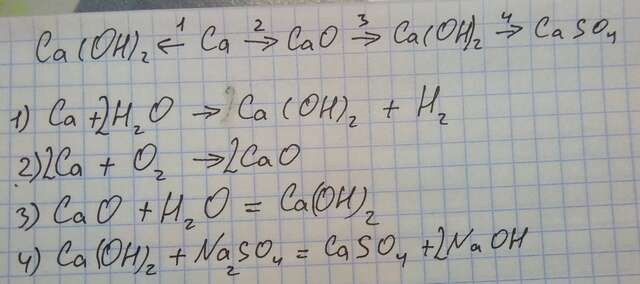 Ca(OH)₂ ←¹ Ca →² CaO →³ Ca(OH)₂ →⁴ CaSO₄
1) Ca + 2H₂O → Ca(OH)₂ + H₂
2) 2Ca + O₂ → 2CaO
3) CaO + H₂O = Ca(OH)₂
4) Ca(OH)₂ + Na₂SO₄ = CaSO₄ + 2NaOH